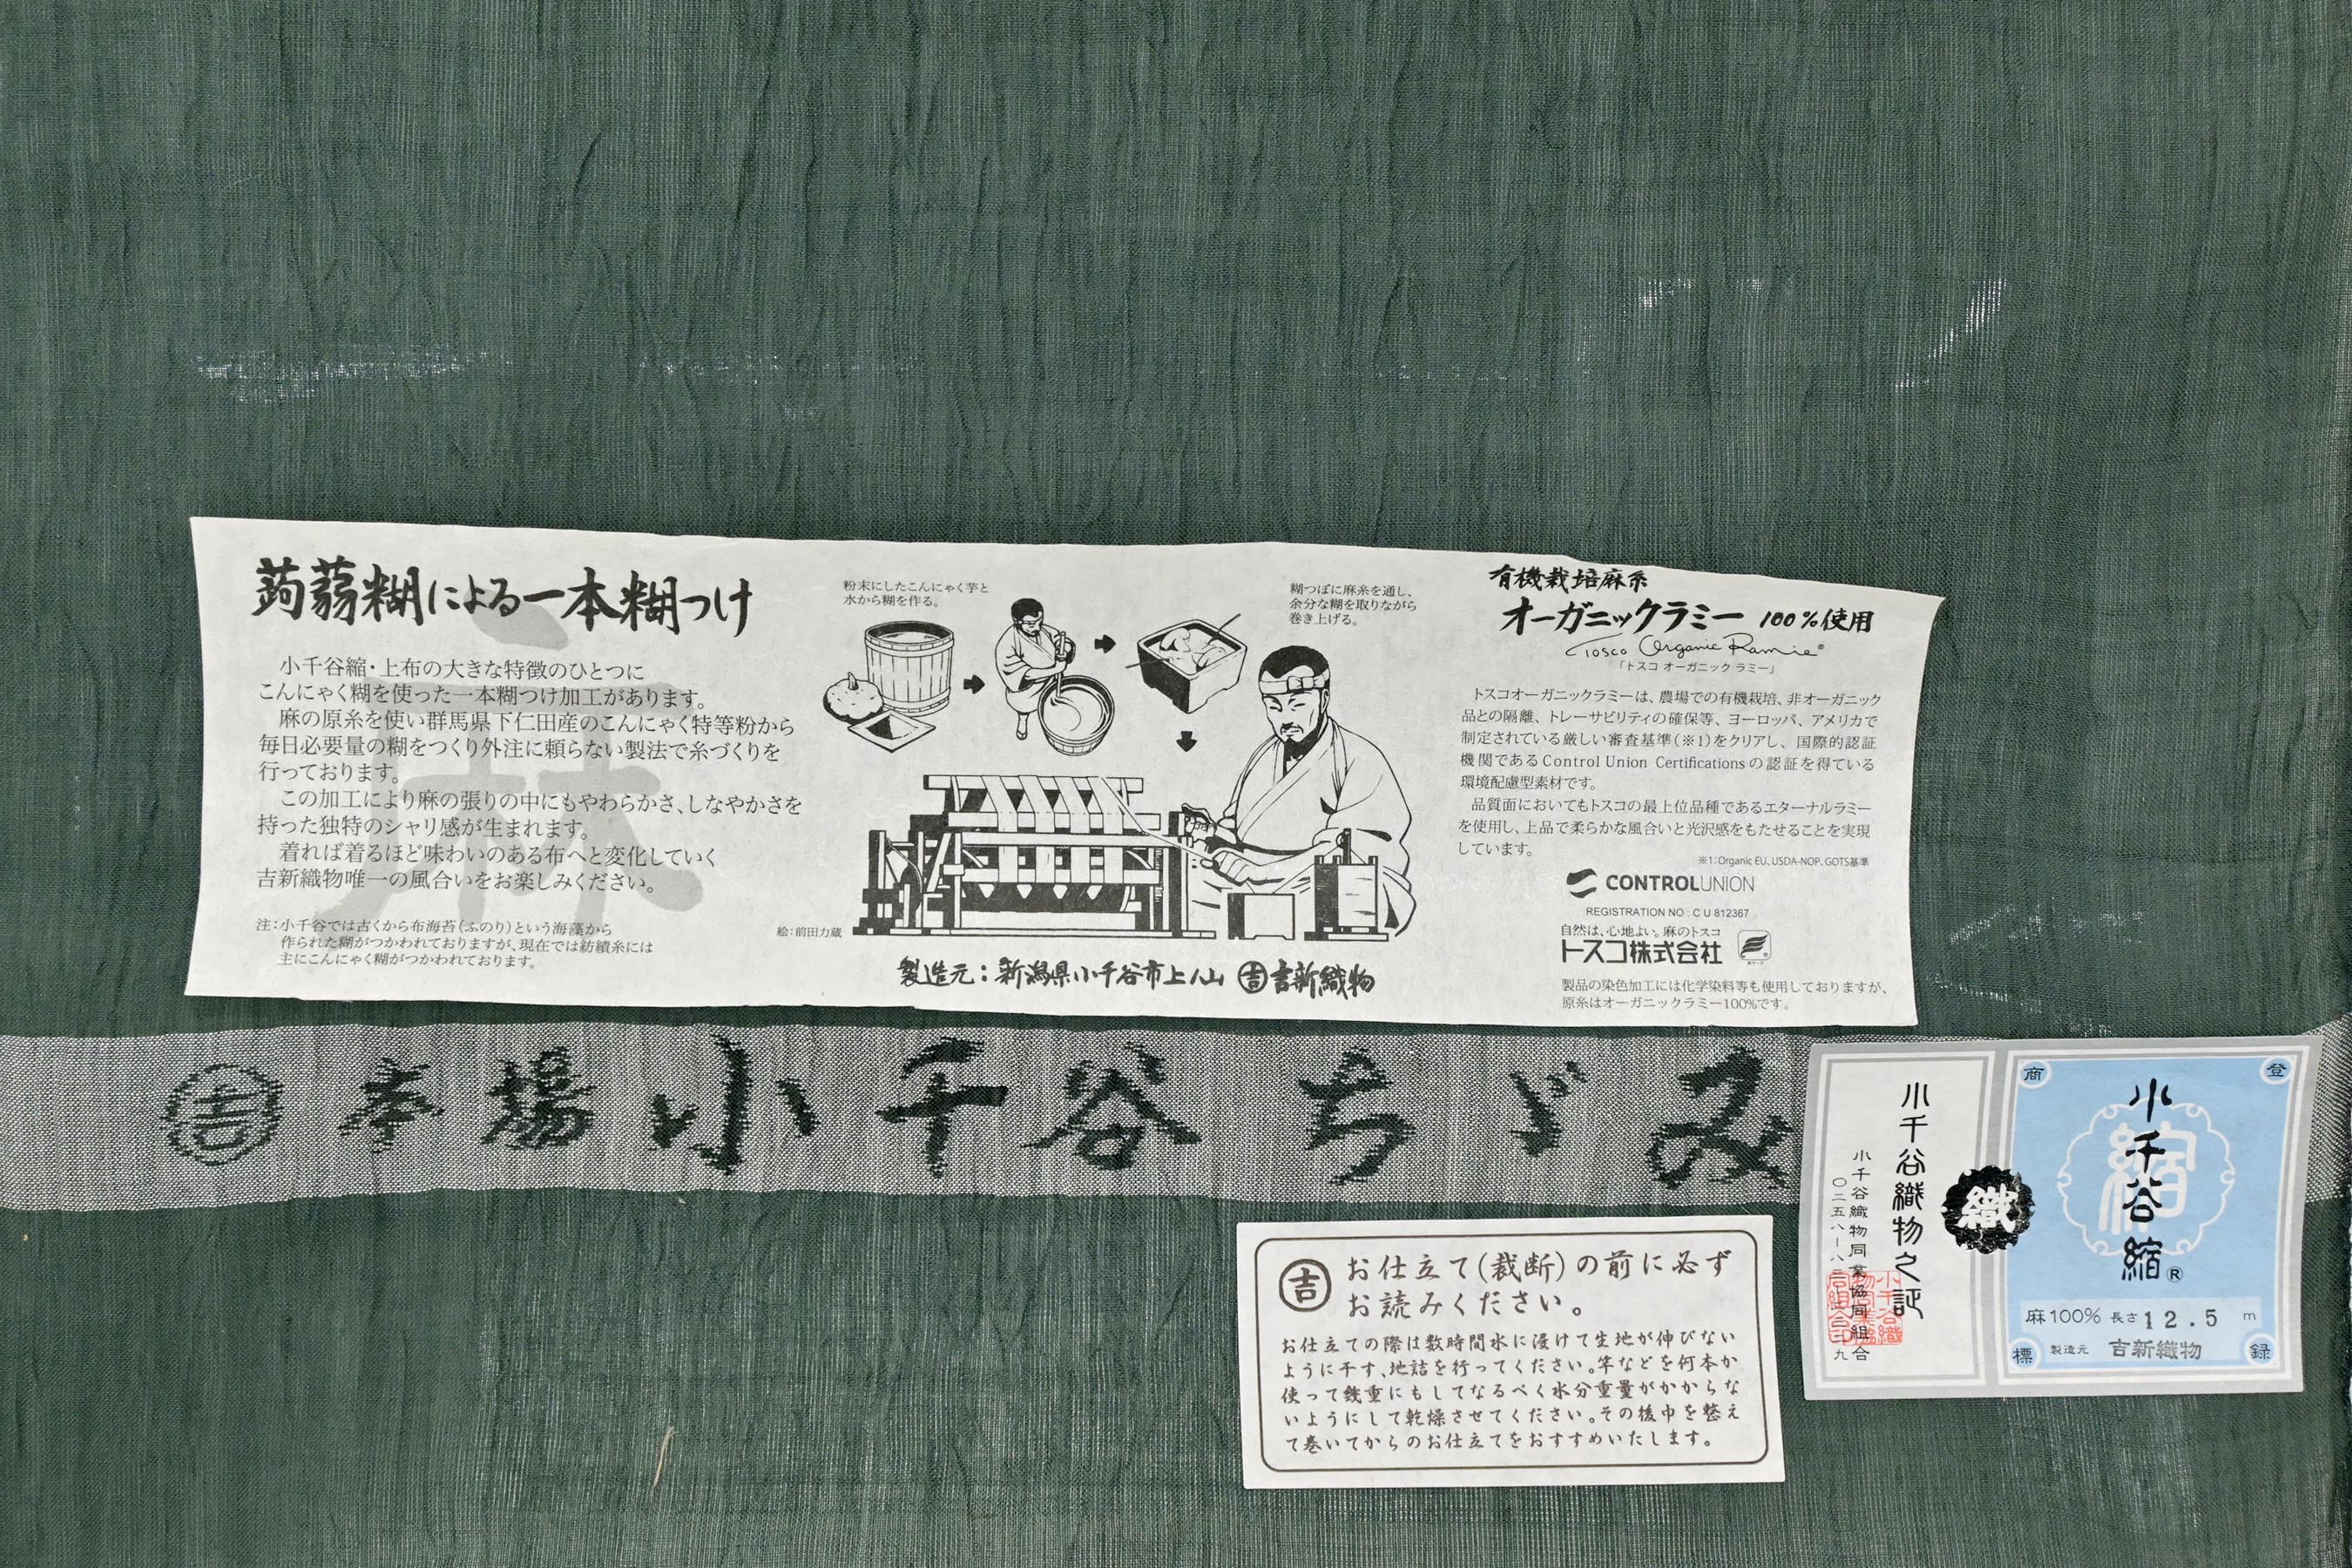 蒟蒻糊による一本糊つけ
小千谷縮・上布の大きな特徴のひとつに
こんにゃく糊を使った一本糊つけ加工があります。
麻の原糸を使い群馬県下仁田産のこんにゃく特等粉から
毎日必要量の糊をつくり外注に頼らない製法で糸づくりを
行っております。
この加工により麻の張りの中にもやわらかさ、しなやかさを
持った独特のシャリ感が生まれます。
着れば着るほど味わいのある布へと変化していく
吉新織物唯一の風合いをお楽しみください。
注：小千谷では古くから布海苔（ふのり）という海藻から
作られた糊がつかわれておりますが、現在では紡績糸には
主にこんにゃく糊がつかわれております。
麻
粉末にしたこんにゃく芋と
水から糊を作る。
糊つぼに麻糸を通し、
余分な糊を取りながら
巻き上げる。
絵：前田力蔵
製造元：新潟県小千谷市上ノ山 吉 吉新織物
有機栽培麻糸
オーガニックラミー 100%使用
Tosco Organic Ramie®
「トスコ オーガニック ラミー」
トスコオーガニックラミーは、農場での有機栽培、非オーガニック
品との隔離、トレーサビリティの確保等、ヨーロッパ、アメリカで
制定されている厳しい審査基準（※1）をクリアし、国際的認証
機関であるControl Union Certificationsの認証を得ている
環境配慮型素材です。
品質面においてもトスコの最上位品種であるエターナルラミー
を使用し、上品で柔らかな風合いと光沢感をもたせることを実現
しています。
※1：Organic EU、USDA-NOP、GOTS基準
CONTROLUNION
REGISTRATION NO : C U 812367
自然は、心地よい。麻のトスコ
トスコ株式会社
製品の染色加工には化学染料等も使用しておりますが、
原糸はオーガニックラミー100%です。
吉 本場小千谷ちゞみ
吉
お仕立て（裁断）の前に必ず
お読みください。
お仕立ての際は数時間水に浸けて生地が伸びない
ように干す、地詰を行ってください。竿などを何本か
使って幾重にもしてなるべく水分重量がかからな
いようにして乾燥させてください。その後巾を整え
て巻いてからのお仕立てをおすすめいたします。
小千谷織物之証
小千谷織物同業協同組合
織
商
登
小千谷縮®
縮
麻100% 長さ12.5 m
標
製造元 吉新織物
録